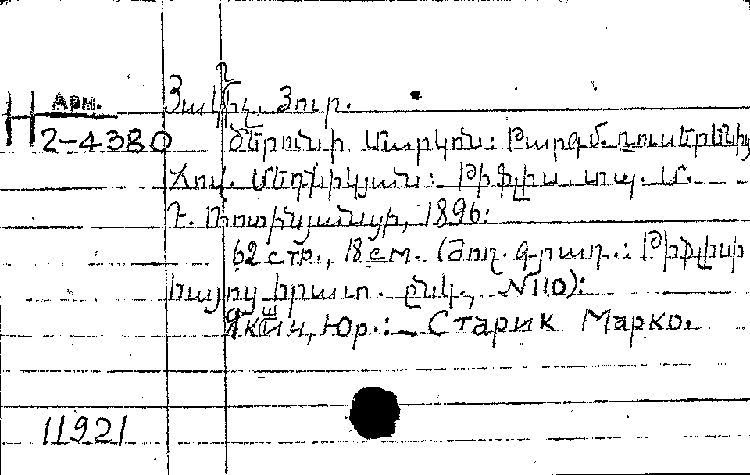 Арм.
Н 2-4380
Յակշիչ. Յուր.
Ծերունի Մարկոն: Թարգմ. ռուսերենից
Հով. Մեղնիկյան: Թիֆլիս տպ. Մ.
Դ. Ռոտինյանցի, 1896:
62 стр., 18 см. (Ժող. գրադ.: Թիֆլիսի
հայոց հրատ. ընկ., №110):
Якшич, Юр.: - Старик Марко.
11921